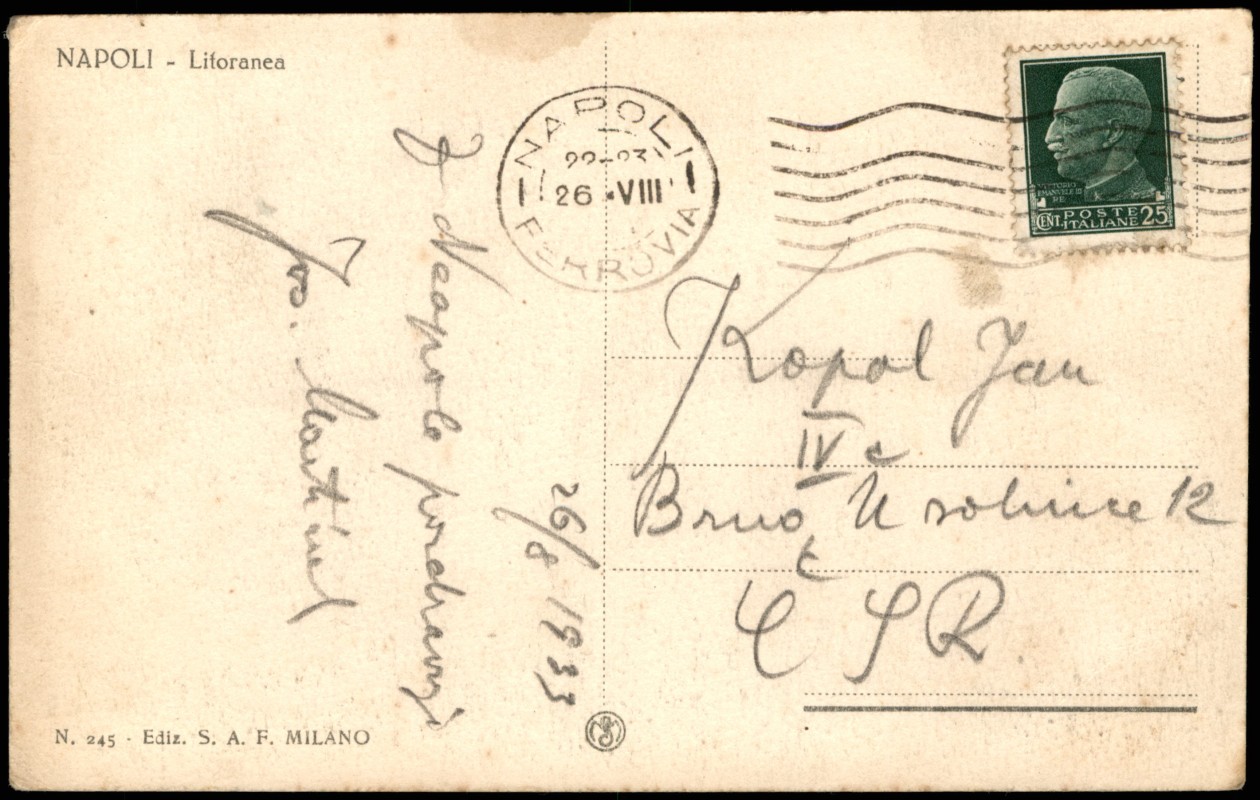 NAPOLI - Litoranea
NAPOLI
22-23
26 · VIII
FERROVIA
VITTORIO
EMANVELE III
RE
CENT. 25
POSTE
ITALIANE
Z Neapole pozdravuji
Jos.
26/8 1933
Kopal Jan
IV c
Brno, U solnice 12
ČSR
N. 245 · Ediz. S. A. F. MILANO